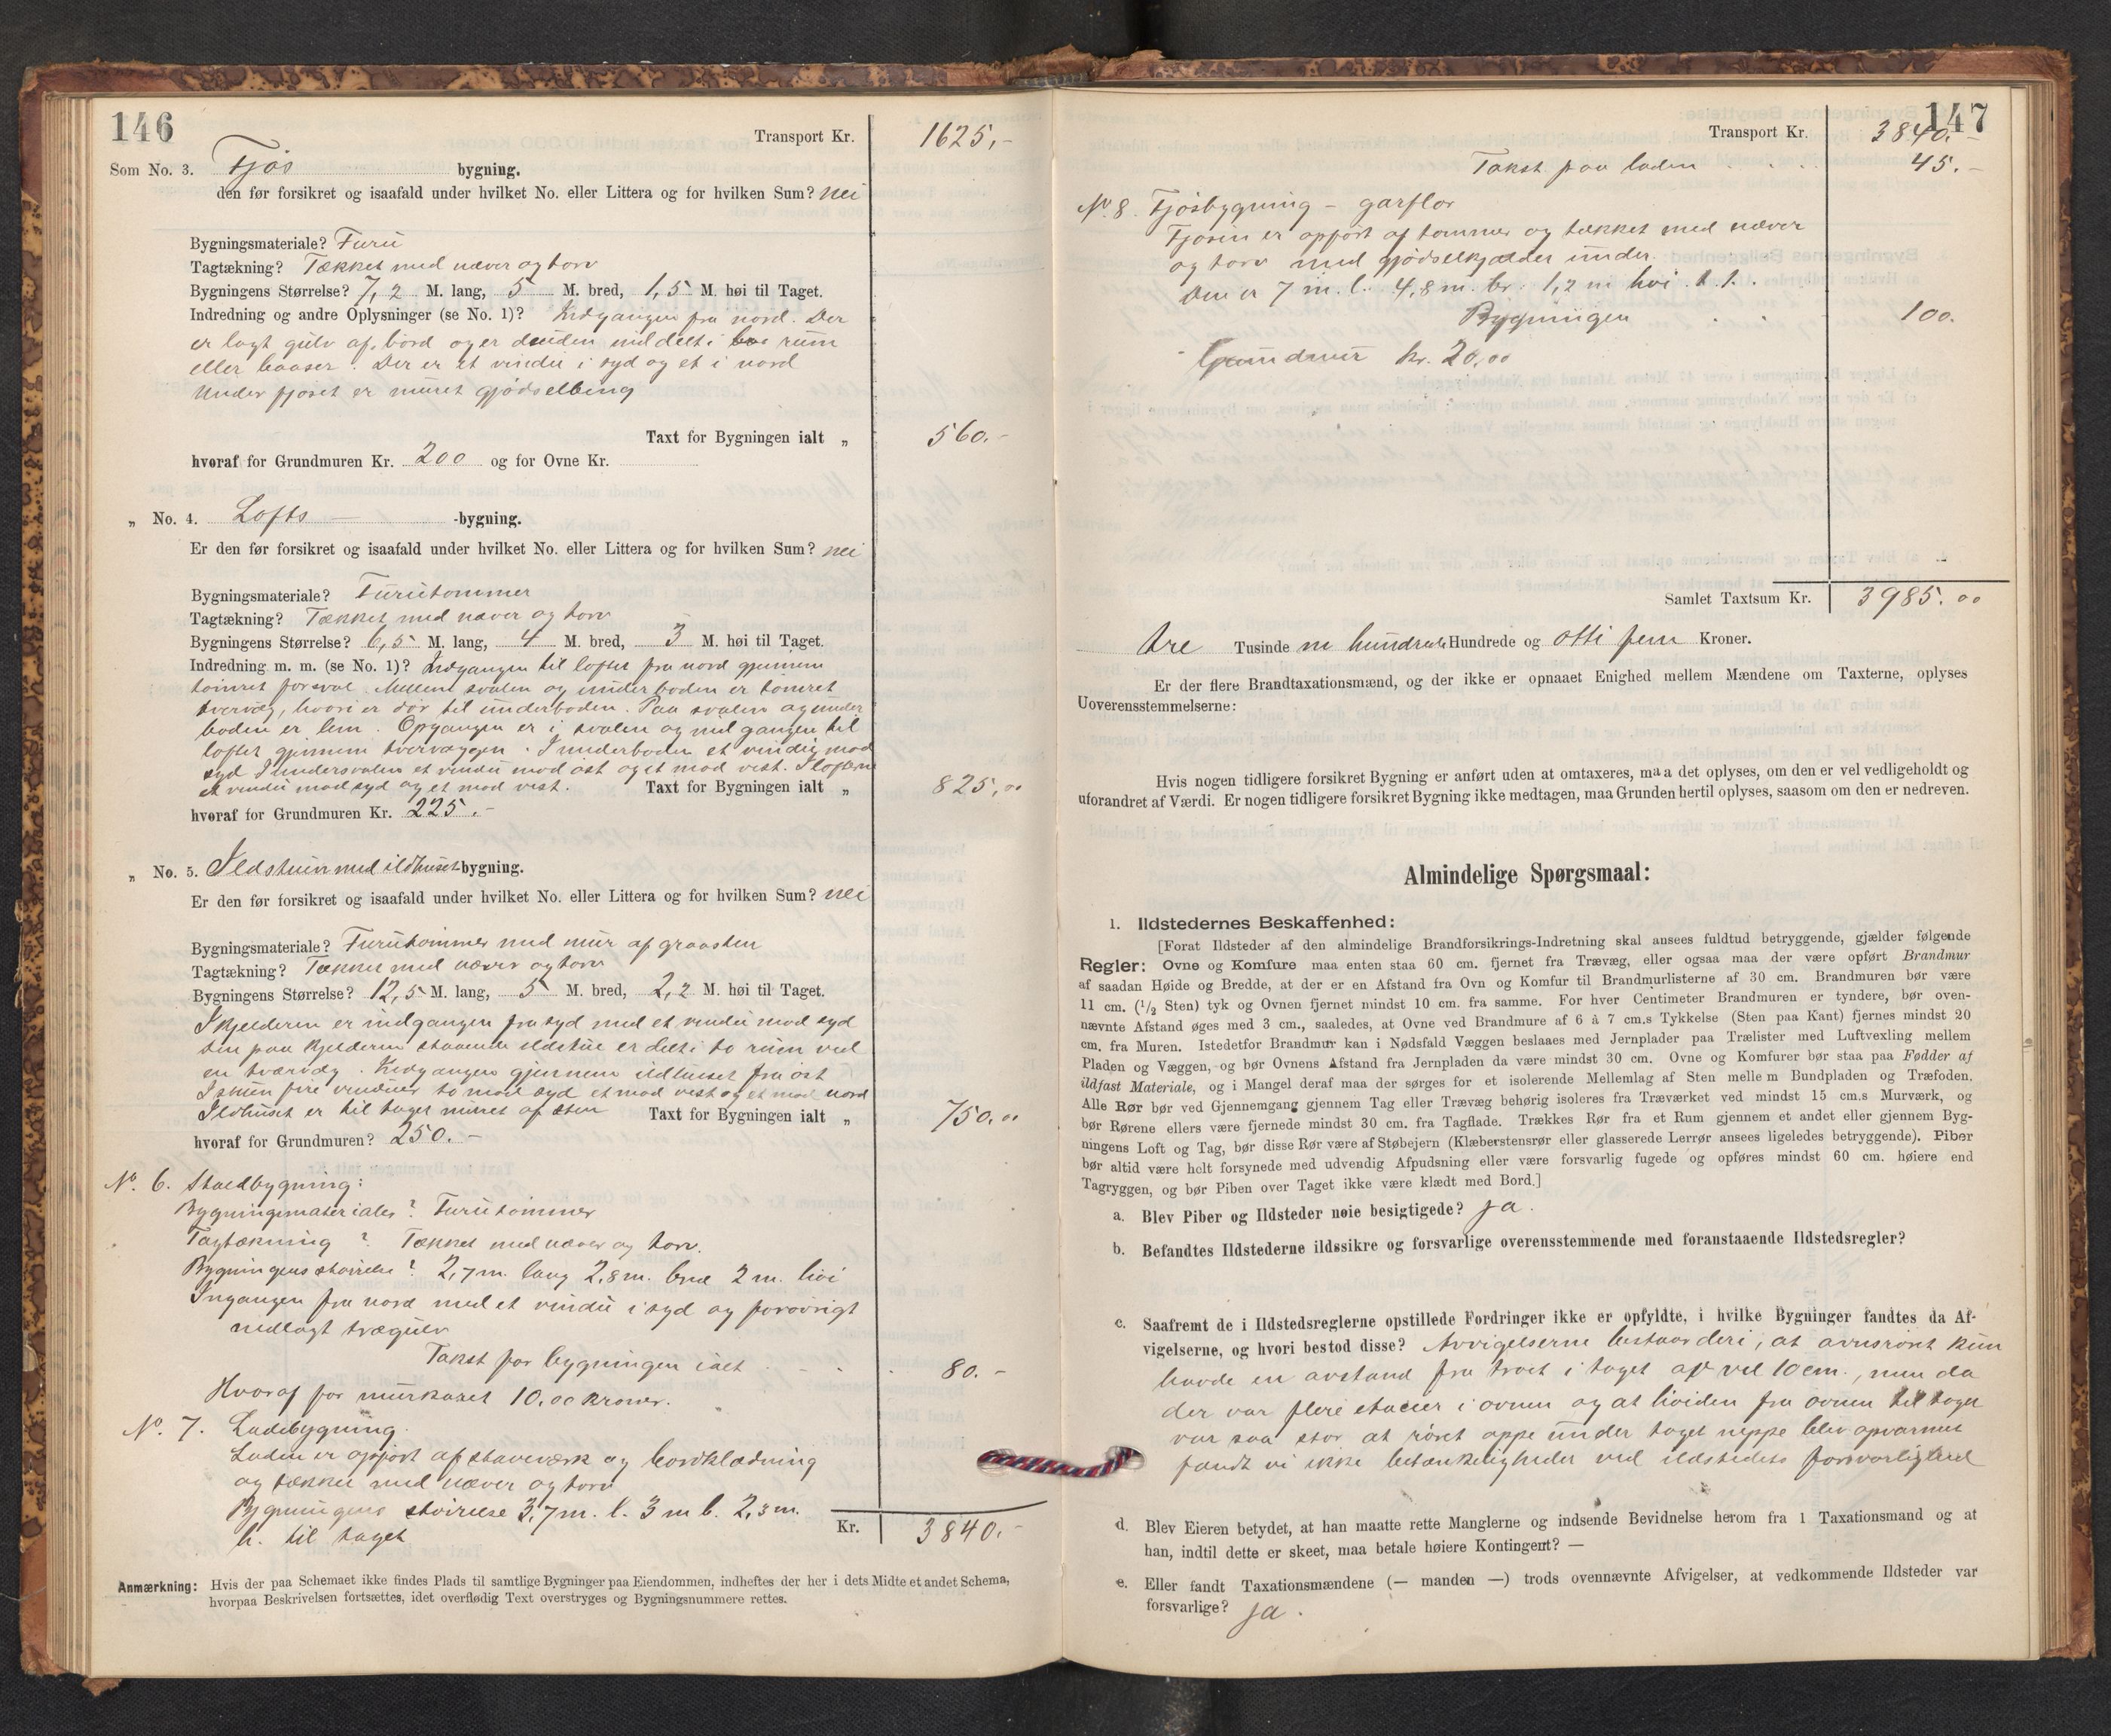 146
Transport Kr. 1625,-
Som No. 3. Fjøs bygning.
den før forsikret og isaafald under hvilket No. eller Littera og for hvilken Sum? nei
Bygningsmateriale? Furu
Tagtækning? Tækket med næver og torv
Bygningens Størrelse? 7,2 M. lang, 5 M. bred, 1,5 M. høi til Taget.
Indredning og andre Oplysninger (se No. 1)? Indgangen fra nord. Der
er lagt gulv af bord og er desuden inddelt i rum
eller baaser. Der er et vindu i syd og et i nord
Under fjøset er muret gjødselbing
Taxt for Bygningen ialt „ 560.-
hvoraf for Grundmuren Kr. 200 og for Ovne Kr.
„ No. 4. Lofts -bygning.
Er den før forsikret og isaafald under hvilket No. eller Littera og for hvilken Sum? nei
Bygningsmateriale? Furutømmer
Tagtækning? Tækket med næver og torv
Bygningens Størrelse? 6,5 M. lang, 4 M. bred, 3 M. høi til Taget.
Indredning m. m. (se No. 1)? Indgangen til loftet fra nord gjennem
tømret forsval. Mellem svalen og underboden er tømret
tvervæg, hvori er dør til underboden. Paa svalen og under
boden er lem. Opgangen er i svalen og indgangen til
loftet gjennem tvervæggen. I underboden et vindu mod
syd I undersvalen et vindu mod øst og et mod vest. I
et vindu mod syd og et mod vest. Taxt for Bygningen ialt „ 825,00
hvoraf for Grundmuren Kr. 225.-
„ No. 5. Ildstuen med ildhuset bygning.
Er den før forsikret og isaafald under hvilket No. eller Littera og for hvilken Sum? nei
Bygningsmateriale? Furutømmer med mur af graasten
Tagtækning? Tækket med næver og torv
Bygningens Størrelse? 12,5 M. lang, 5 M. bred, 2,2 M. høi til Taget.
I kjelderen er indgangen fra syd med et vindu mod syd
Den paa kjelderen staaende ildstue er delt i to rum ved
en tværvæg. Indgangen gjennem ildhuset fra øst
I stuen fire vinduer to mod syd et mod vest og et mod nord
Ildhuset er til taget muret af sten Taxt for Bygningen ialt „ 750.00
hvoraf for Grundmuren? 250.-
No. 6. Staldbygning:
Bygningsmateriale? Furutømmer
Tagtækning? Tækket med næver og torv.
Bygningens størrelse? 2,7 m. lang 2,8 m. bred 2 m. høi
Ingangen fra nord med et vindu i syd og forøvrigt
nedlagt trægulv
Takst for bygningen ialt 80.-
Hvoraf for murkaret 10,00 kroner.
No. 7. Ladebygning.
Laden er opført af staveværk og bordklædning
og tækket med næver og torv
Bygningens størrelse 3,7 m. l. 3 m b. 2,3 m.
h. til taget
Kr. 3840.-
Anmærkning: Hvis der paa Schemaet ikke findes Plads til samtlige Bygninger paa Eiendommen, indheftes der her i dets Midte et andet Schema,
hvorpaa Beskrivelsen fortsættes, idet overflødig Text overstryges og Bygningsnummere rettes.
147
Transport Kr. 3840.-
Takst paa laden 45.-
No. 8. Fjøsbygning - garflor
Fjøsen er opført af tømmer og tækket med næver
og torv med gjødselkjælder under.
Den er 7 m. l. 4,8 m. br. 1,2 m høi t. t.
Bygningen 100.
Grundmur kr. 20,00
Samlet Taxtsum Kr. 3985.00
tre Tusinde ni hundrede Hundrede og otti fem Kroner.
Er der flere Brandtaxationsmænd, og der ikke er opnaaet Enighed mellem Mændene om Taxterne, oplyses
Uoverensstemmelserne:
Hvis nogen tidligere forsikret Bygning er anført uden at omtaxeres, maa det oplyses, om den er vel vedligeholdt og
uforandret af Værdi. Er nogen tidligere forsikret Bygning ikke medtagen, maa Grunden hertil oplyses, saasom om den er nedreven.
Almindelige Spørgsmaal:
1. Ildstedernes Beskaffenhed:
[Forat Ildsteder af den almindelige Brandforsikrings-Indretning skal ansees fuldtud betryggende, gjælder følgende
Regler: Ovne og Komfure maa enten staa 60 cm. fjernet fra Trævæg, eller ogsaa maa der være opført Brandmur
af saadan Høide og Bredde, at der er en Afstand fra Ovn og Komfur til Brandmurlisterne af 30 cm. Brandmuren bør være
11 cm. (1/2 Sten) tyk og Ovnen fjernet mindst 10 cm. fra samme. For hver Centimeter Brandmuren er tyndere, bør oven-
nævnte Afstand øges med 3 cm., saaledes, at Ovne ved Brandmure af 6 à 7 cm.s Tykkelse (Sten paa Kant) fjernes mindst 20
cm. fra Muren. Istedetfor Brandmur kan i Nødsfald Væggen beslaaes med Jernplader paa Trælister med Luftvexling mellem
Pladen og Væggen, og bør Ovnens Afstand fra Jernpladen da være mindst 30 cm. Ovne og Komfurer bør staa paa Fødder af
ildfast Materiale, og i Mangel deraf maa der sørges for et isolerende Mellemlag af Sten mellem Bundpladen og Træfoden.
Alle Rør bør ved Gjennemgang gjennem Tag eller Trævæg behørig isoleres fra Træværket ved mindst 15 cm.s Murværk, og
bør Rørene ellers være fjernede mindst 30 cm. fra Tagflade. Trækkes Rør fra et Rum gjennem et andet eller gjennem Byg-
ningens Loft og Tag, bør disse Rør være af Støbejern (Klæberstensrør eller glasserede Lerrør ansees ligeledes betryggende). Piber
bør altid være helt forsynede med udvendig Afpudsning eller være forsvarlig fugede og opføres mindst 60 cm. høiere end
Tagryggen, og bør Piben over Taget ikke være klædt med Bord.]
a. Blev Piber og Ildsteder nøie besigtigede? Ja.
b. Befandtes Ildstederne ildssikre og forsvarlige overensstemmende med foranstaaende Ildstedsregler?
c. Saafremt de i Ildstedsreglerne opstillede Fordringer ikke er opfyldte, i hvilke Bygninger fandtes da Af-
vigelserne, og hvori bestod disse? Avvigelserne bestaar deri, at ovnsrøret kun
havde en avstand fra træet i taget af vel 10 cm., men da
der var flere etacier i ovnen og at høiden fra ovnen til taget
var saa stor at røret oppe under taget neppe blev opvarmet
fandt vi ikke betænkeligheder ved ildstedets forsvarlighed
d. Blev Eieren betydet, at han maatte rette Manglerne og indsende Bevidnelse herom fra 1 Taxationsmand og at
han, indtil dette er skeet, maa betale høiere Kontingent? —
e. Eller fandt Taxationsmændene (— manden —) trods ovennævnte Afvigelser, at vedkommende Ildsteder var
forsvarlige? ja.